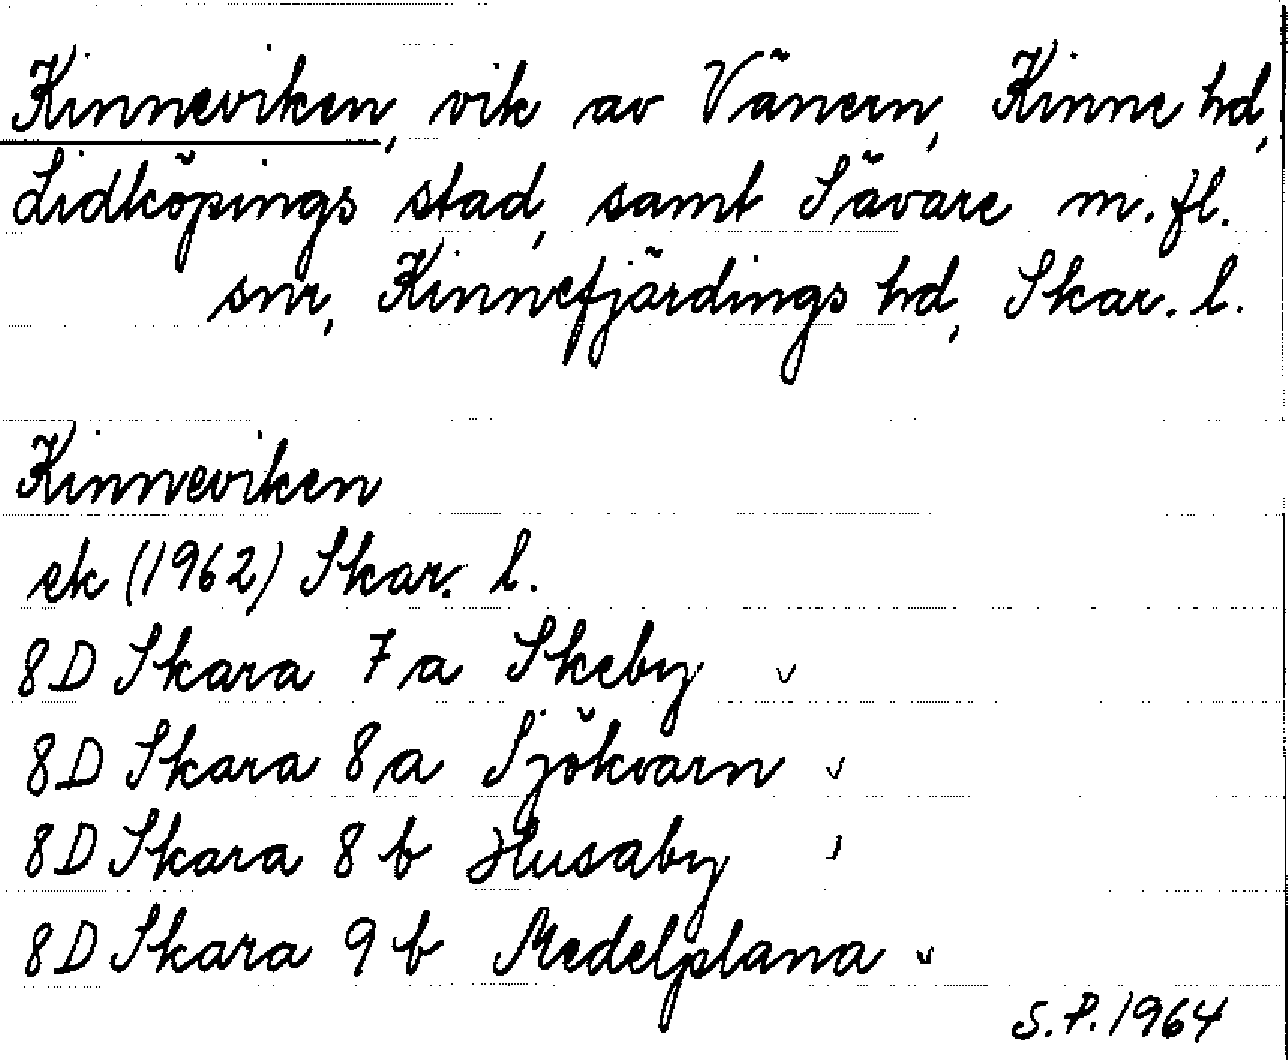 Kinneviken, vik av Vänern, Kinne hd,
Lidköpings stad, samt Sävare m. fl.
snr, Kinnefjärdings hd, Skar. l.
Kinneviken
ek (1962) Skar. l.
8D Skara 7a Skeby
8D Skara 8a Sjökvarn
8D Skara 8b Husaby
8D Skara 9b Medelplana
S.P. 1964